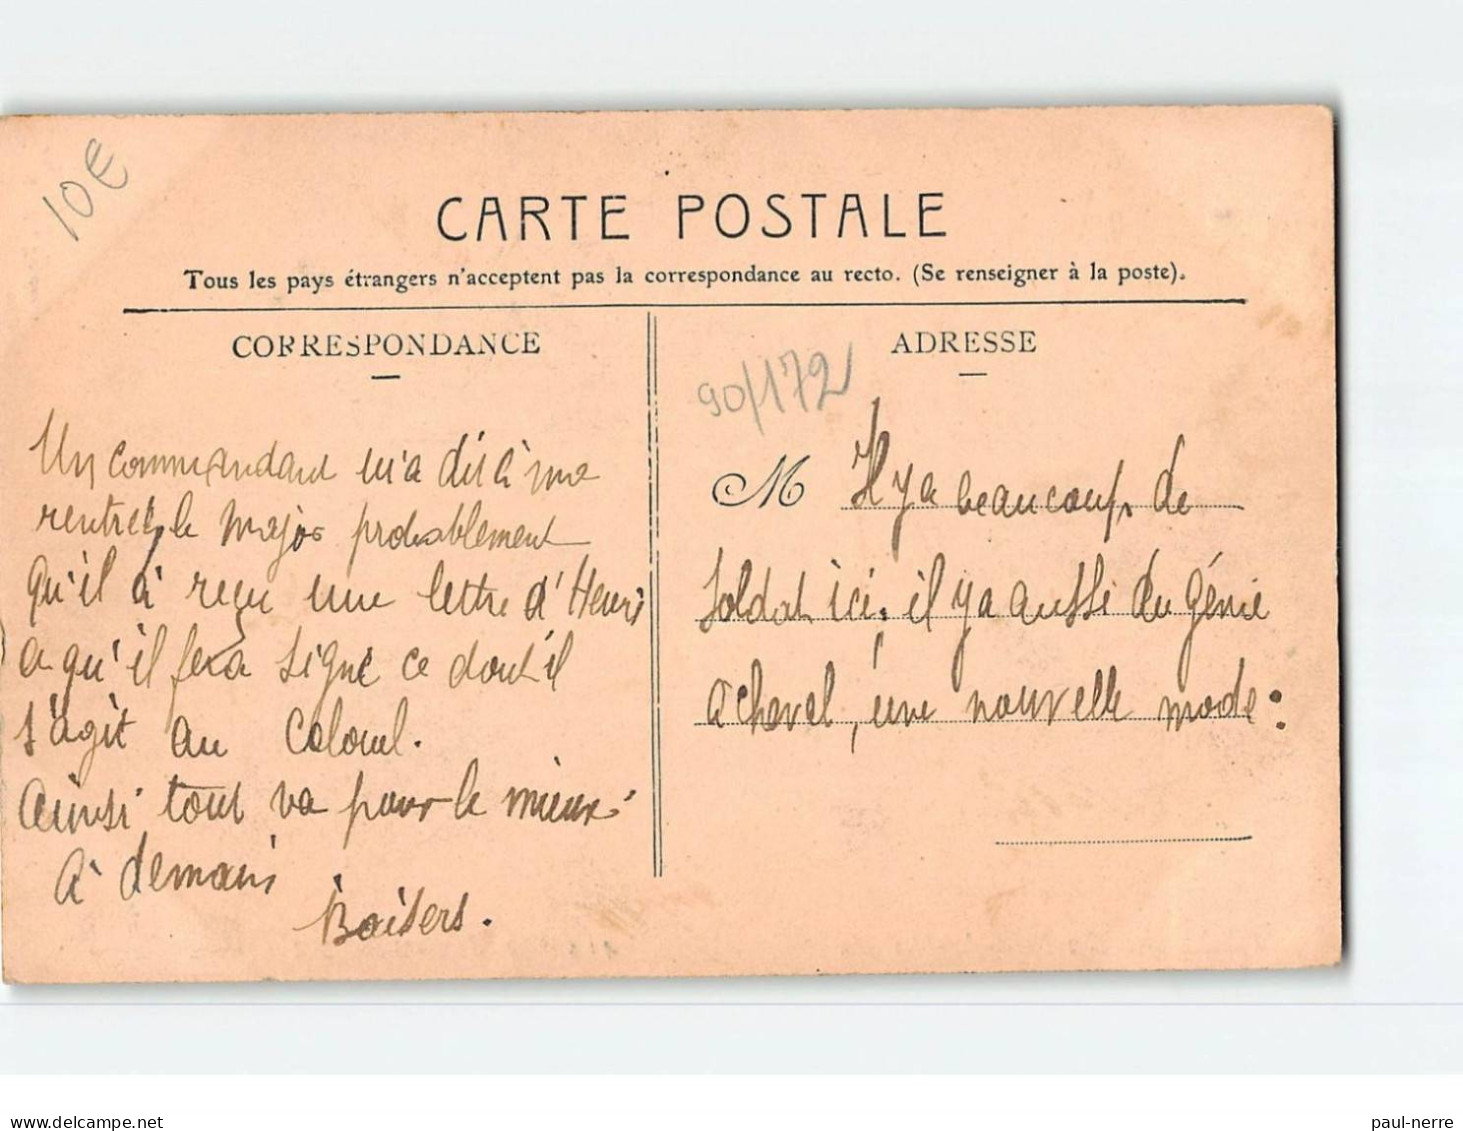 10€
CARTE POSTALE
Tous les pays étrangers n'acceptent pas la correspondance au recto. (Se renseigner à la poste).
CORRESPONDANCE
Un commandant m'a dit à ma
rentrée, le Major probablement
qu'il à reçu une lettre d'Henri
a qu'il fera signé ce dont il
s'agit au Colonel.
Ainsi tout va pour le mieux.
A demain
Baisers.
ADRESSE
90/172
M Il y a beaucoup de
Soldat ici. il y a aussi du génie
a cheval, une nouvelle mode.
delcampe.net
paul-nerre